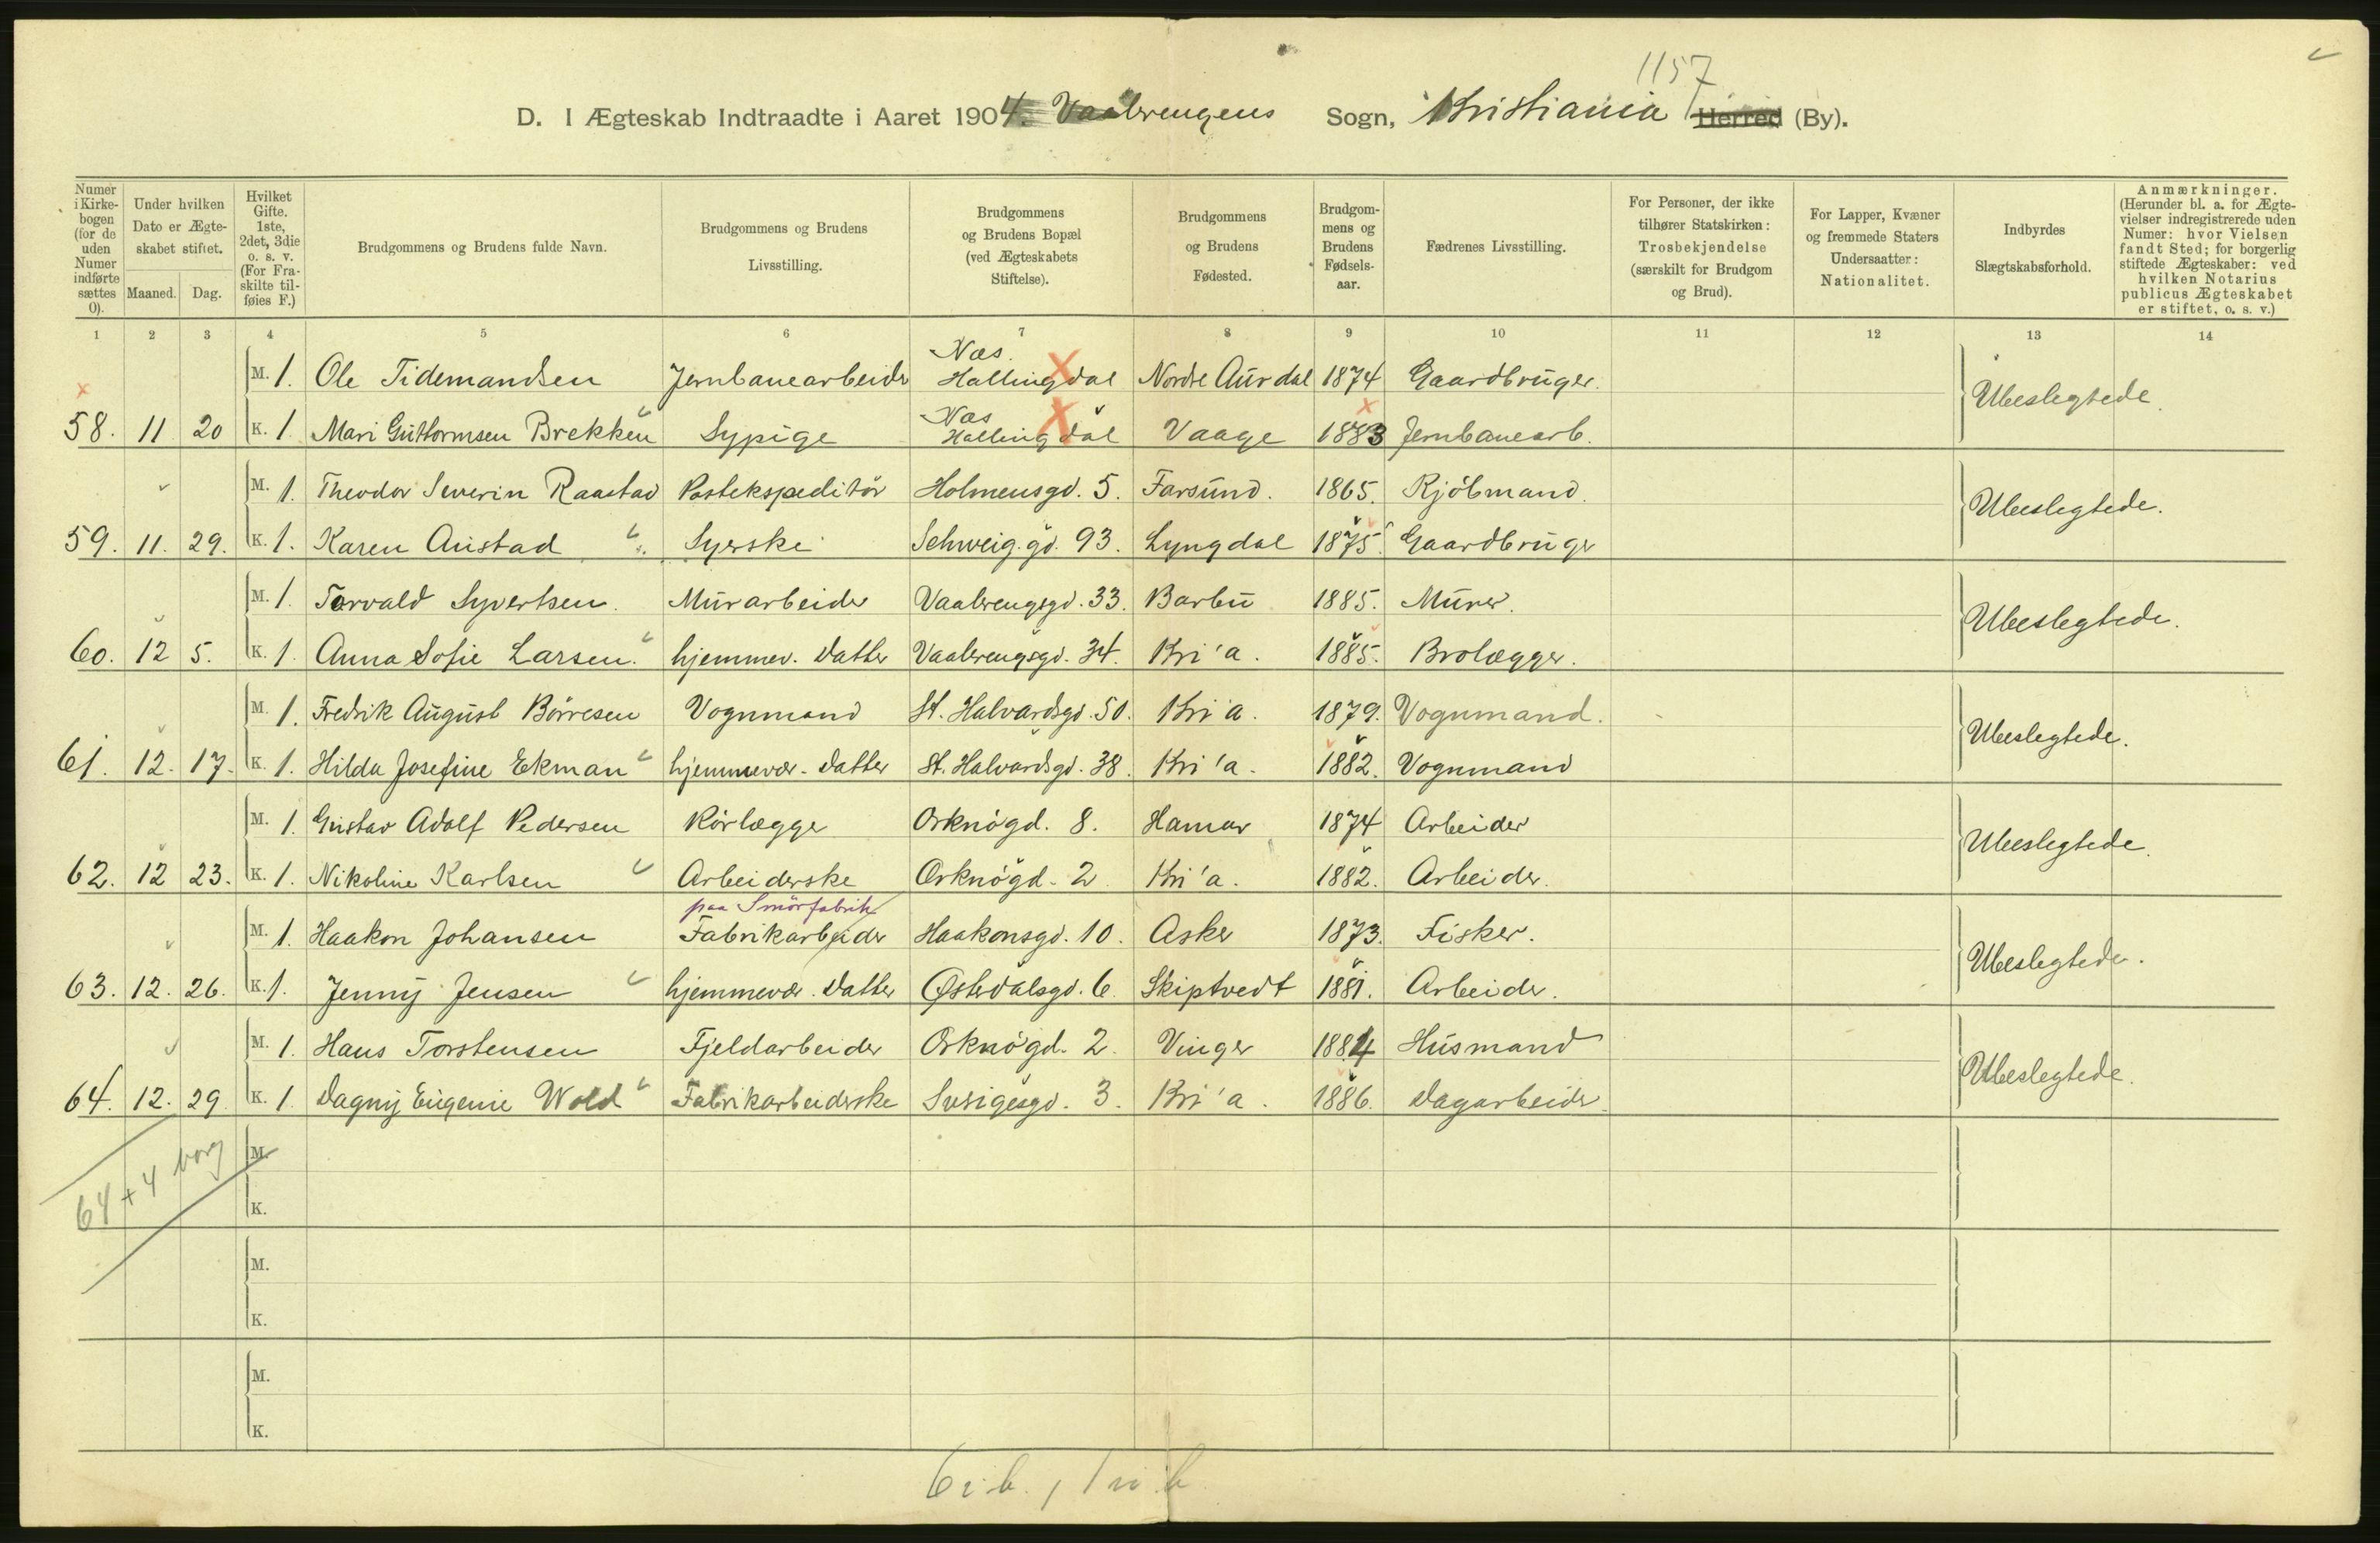 1157
D. I Ægteskab Indtraadte i Aaret 1904. Vaalerengens Sogn, Kristiania Herred (By).
Numer i Kirkebogen (for de uden Numer indførte sættes 0).
Under hvilken Dato er Ægteskabet stiftet.
Maaned. Dag.
Hvilket Gifte. 1ste, 2det, 3die o. s. v. (For Fraskilte tilføies F.)
Brudgommens og Brudens fulde Navn.
Brudgommens og Brudens Livsstilling.
Brudgommens og Brudens Bopæl (ved Ægteskabets Stiftelse).
Brudgommens og Brudens Fødested.
Brudgommens og Brudens Fødselsaar.
Fædrenes Livsstilling.
For Personer, der ikke tilhører Statskirken: Trosbekjendelse (særskilt for Brudgom og Brud).
For Lapper, Kvæner og fremmede Staters Undersaatter: Nationalitet.
Indbyrdes Slægtskabsforhold.
Anmærkninger. (Herunder bl. a. for Ægtevielser indregistrerede uden Numer: hvor Vielsen fandt Sted; for borgerlig stiftede Ægteskaber: ved hvilken Notarius publicus Ægteskabet er stiftet, o. s. v.)
1 2 3 4 5 6 7 8 9 10 11 12 13 14
M. 1. Ole Tidemandsen Jernbanearbeider Næs. Hallingdal Nordre Aurdal 1874 Gaardbruger. Ubeslegtede.
58. 11 20 K. 1 Mari Guttormsen Brekken Sypige Næs Hallingdal Vaage 1883 Jernbanearb.
M. 1. Theodor Severin Raastad Postekspeditör Holmensgd. 5. Farsund. 1865. Kjöbmand. Ubeslegtede.
59. 11. 29. K. 1. Karen Austad Syerske Schweig.gd. 93. Lyngdal 1875. Gaardbruger
M. 1. Torvald Syvertsen. Murarbeider Vaalerengsgd. 33. Barbu 1885. Murer. Ubeslegtede.
60. 12 5. K. 1. Anna Sofie Larsen. hjemmev. Datter Vaalerengsgd. 34. Kri'a. 1885. Brolægger.
M. 1. Fredrik August Börresen Vognmand St. Halvardsgd. 50. Kri'a. 1879. Vognmand. Ubeslegtede.
61. 12. 17. K. 1. Hilda Josefine Ekman hjemmevær. Datter St. Halvardsgd. 38. Kri'a. 1882. Vognmand
M. 1. Gustav Adolf Pedersen Rörlægger Orknögd. 8. Hamar 1874 Arbeider Ubeslegtede.
62. 12 23. K. 1. Nikoline Karlsen Arbeiderske Orknögd. 2 Kri'a. 1882. Arbeider.
paa Smörfabrik
M. 1. Haakon Johansen Fabrikarbeider Haakonsgd. 10. Asker 1873. Fisker. Ubeslegtede.
63. 12. 26. K. 1. Jenny Jensen hjemmevær. Datter Østerdalsgd. 6. Skiptvedt 1881. Arbeider.
M. 1. Hans Torstensen Fjeldarbeider Orknögd. 2. Vinger 1884 Husmand Ubeslegtede.
64. 12. 29. K. 1 Dagny Eugenie Wold Fabrikarbeiderske Sverigesgd. 3. Kri'a. 1886. Dagarbeider.
64 + 4 borg
M.
K.
M.
K.
M.
K.